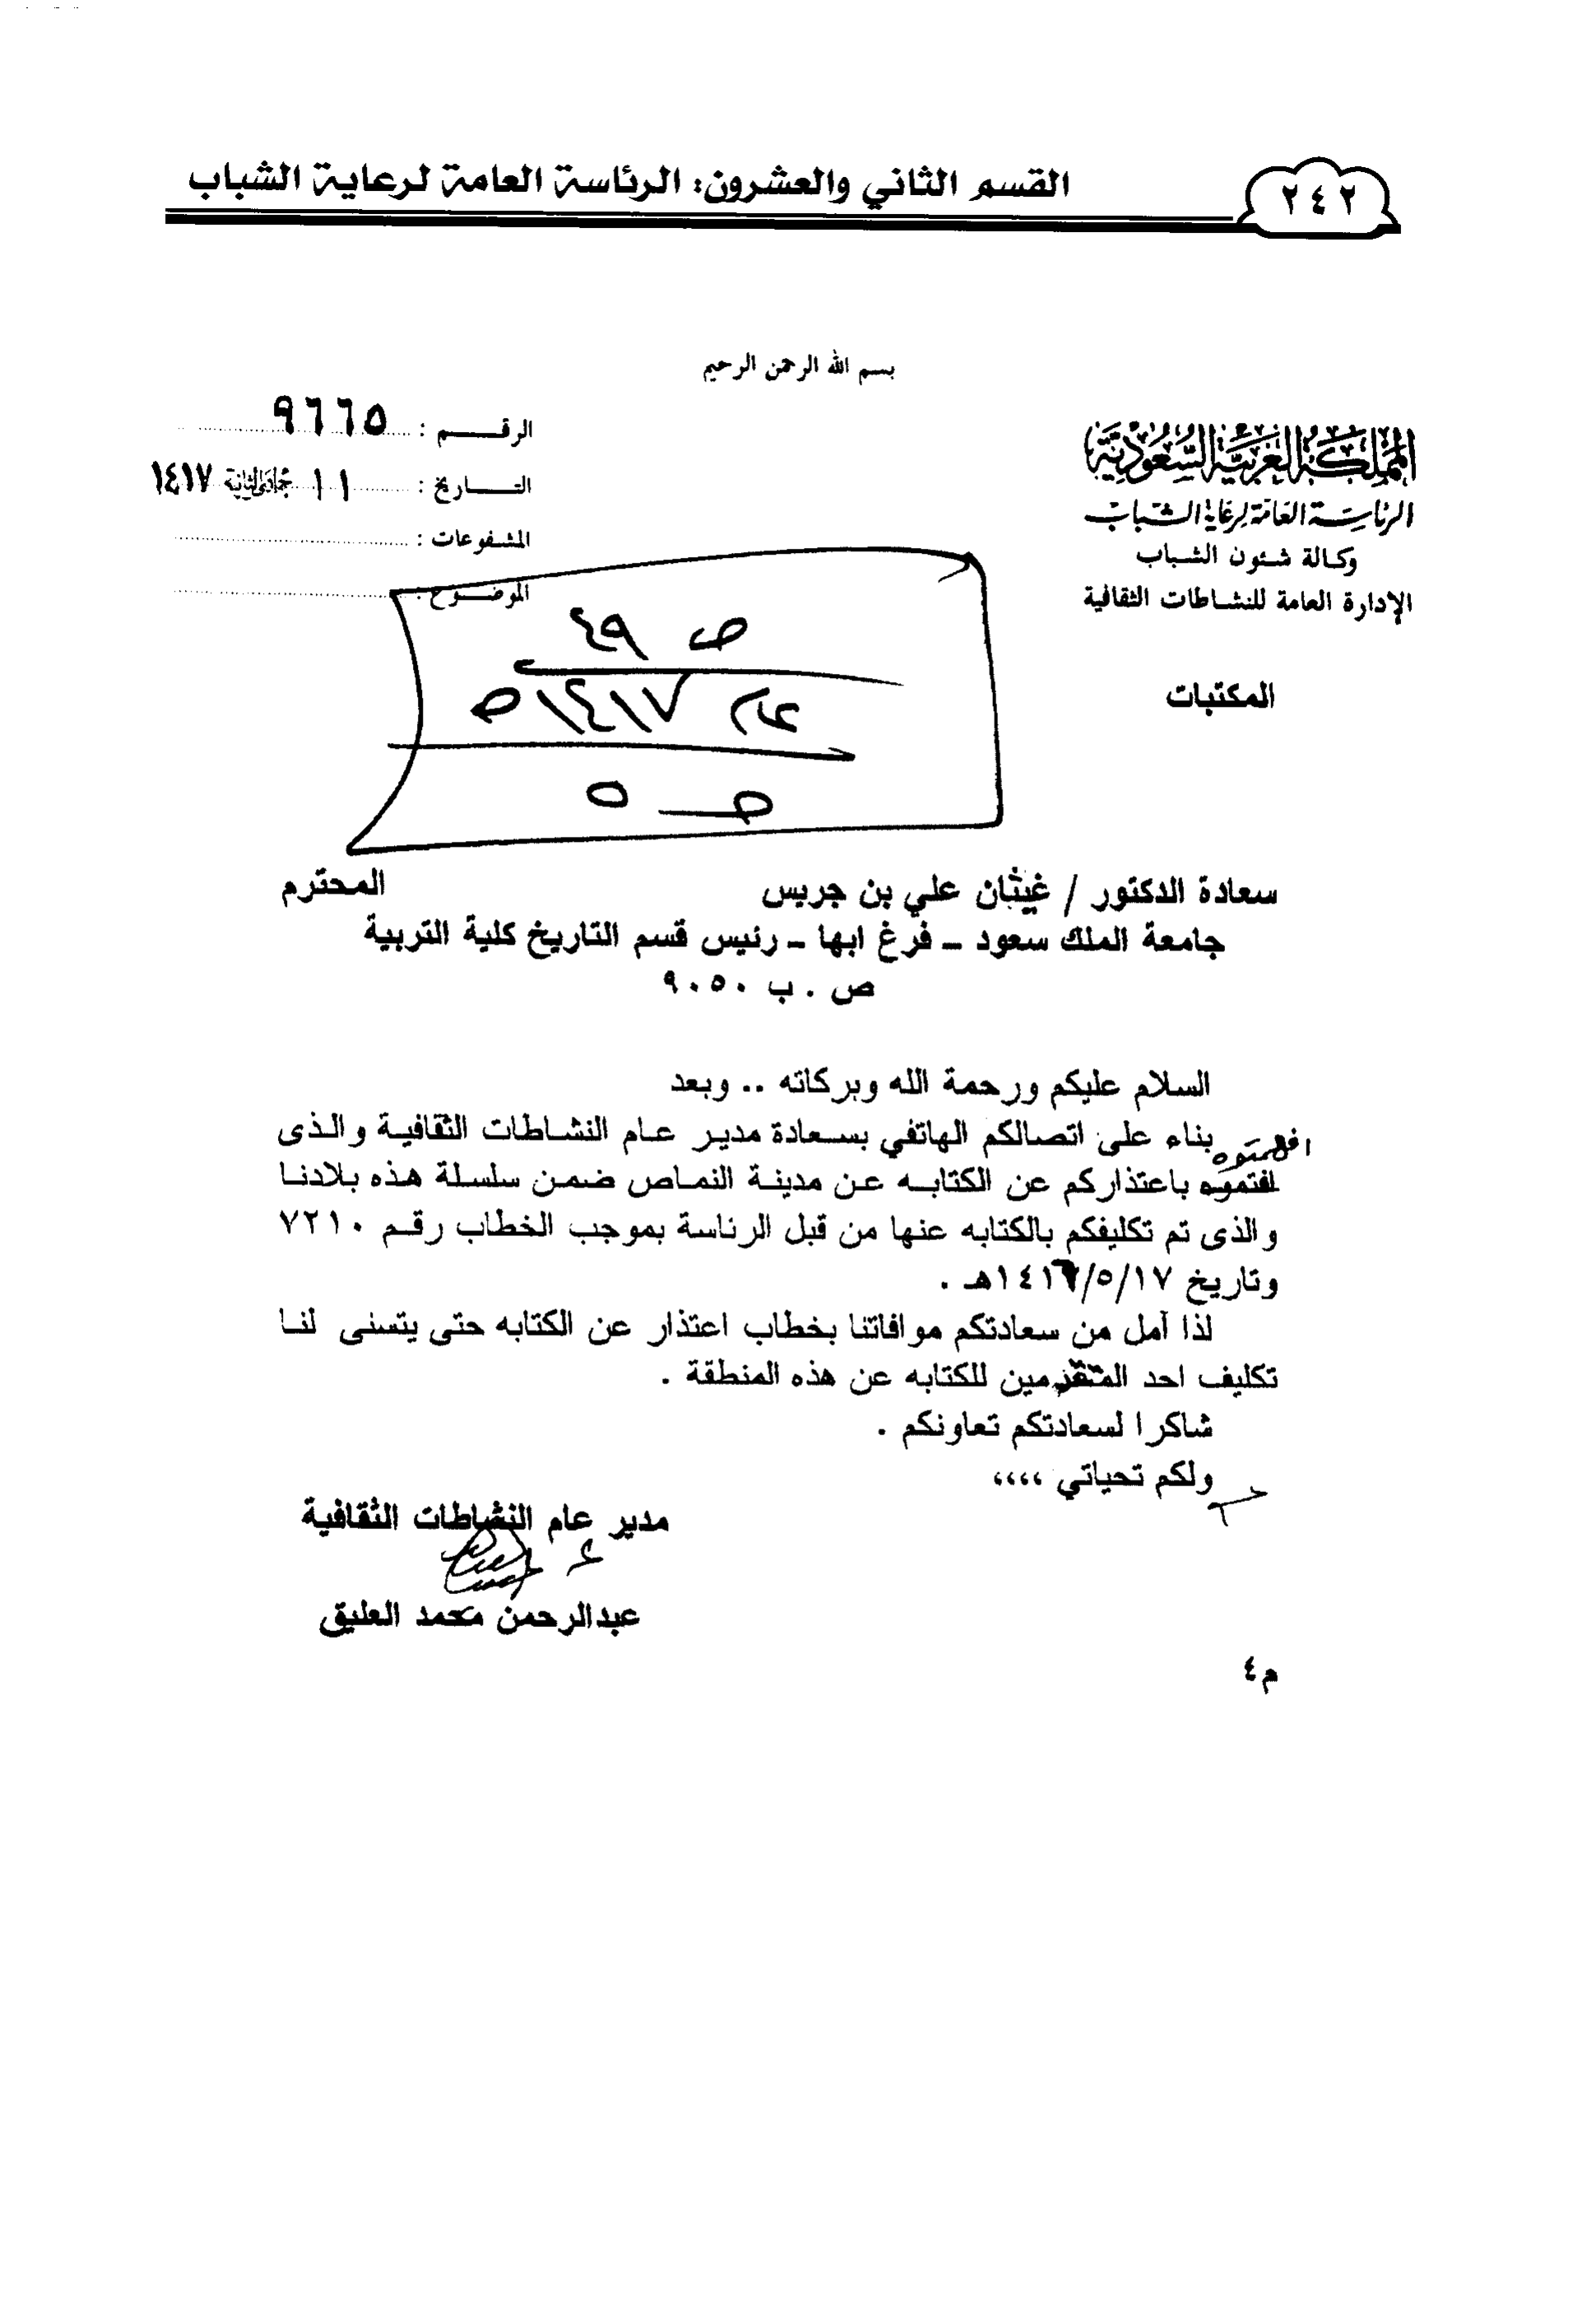 ٢٤٢
القسم الثاني والعشرون: الرئاسة العامة لرعاية الشباب
بسم الله الرحمن الرحيم
المملكة العربية السعودية
الرئاسة العامة لرعاية الشباب
وكالة شئون الشباب
الإدارة العامة للنشاطات الثقافية
المكتبات
الرقــــم : ٩٦٦٥
التــــاريخ : ١١ جمادى الثانية ١٤١٧
المشفوعات :
الموضــوع :
ص ٤٩
عام ١٤١٧ هـ
ص ٥
سعادة الدكتور / غيثان علي بن جريس المحترم
جامعة الملك سعود - فرع ابها - رئيس قسم التاريخ كلية التربية
ص . ب ٩٠٥٠
السلام عليكم ورحمة الله وبركاته .. وبعد
بناء على اتصالكم الهاتفي بسعادة مدير عام النشاطات الثقافية والذى
افهمتوه
باعتذاركم عن الكتابه عن مدينة النماص ضمن سلسلة هذه بلادنا
والذى تم تكليفكم بالكتابه عنها من قبل الرئاسة بموجب الخطاب رقم ٧٢١٠
وتاريخ ١٤١٦/٥/١٧هـ .
لذا آمل من سعادتكم موافاتنا بخطاب اعتذار عن الكتابه حتى يتسنى لنا
تكليف احد المتقدمين للكتابه عن هذه المنطقة .
شاكرا لسعادتكم تعاونكم .
ولكم تحياتي ،،،،
مدير عام النشاطات الثقافية
عبدالرحمن محمد العليق
م٤